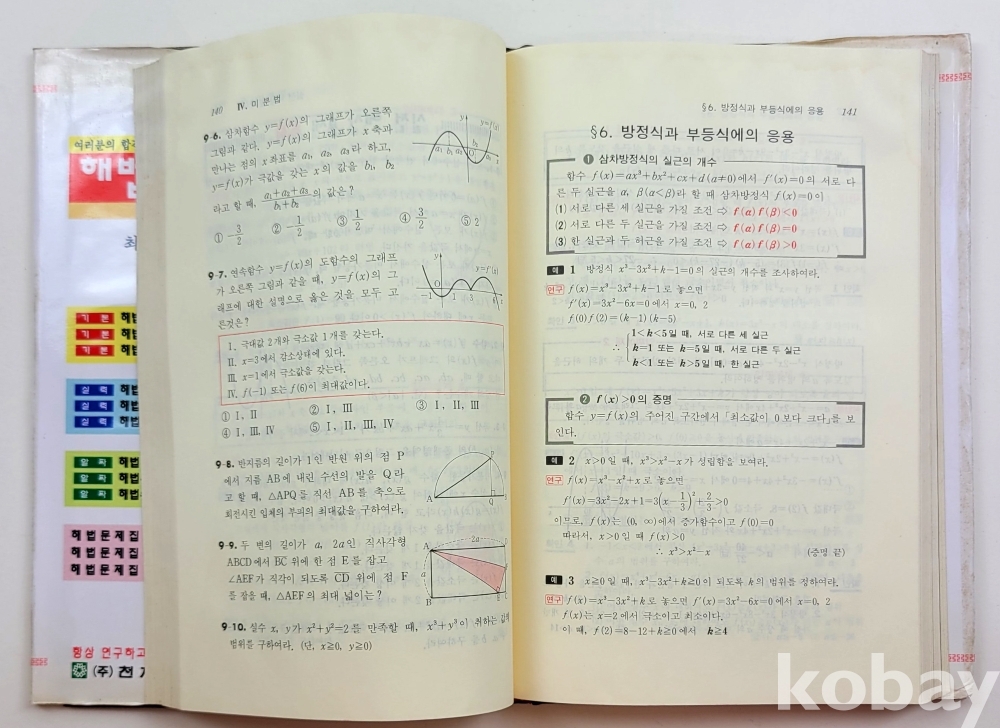 여러분의 합
해법
최
기 본 해법
기 본 해법
기 본 해법
실 력 해법
실 력 해법
실 력 해법
알 짜 해법
알 짜 해법
알 짜 해법
해법문제집
해법문제집
해법문제집
항상 연구하고
(주) 천
140 Ⅳ. 미분법
9-6. 삼차함수 y=f(x)의 그래프가 오른쪽
그림과 같다. y=f(x)의 그래프가 x축과
만나는 점의 x좌표를 a₁, a₂, a₃라 하고,
y=f(x)가 극값을 갖는 x의 값을 b₁, b₂
라고 할 때, (a₁+a₂+a₃)/(b₁+b₂) 의 값은?
① -3/2 ② -1/2 ③ 1/2 ④ 3/2 ⑤ 2
y y=f(x)
b₂
a₁ b₁ a₂ O a₃ x
9-7. 연속함수 y=f(x)의 도함수의 그래프
가 오른쪽 그림과 같을 때, y=f(x)의 그
래프에 대한 설명으로 옳은 것을 모두 고
른것은?
y y=f′(x)
O
-1 1 3 6 x
Ⅰ. 극대값 2개와 극소값 1개를 갖는다.
Ⅱ. x=3에서 감소상태에 있다.
Ⅲ. x=1에서 극소값을 갖는다.
Ⅳ. f(-1) 또는 f(6)이 최대값이다.
① Ⅰ, Ⅱ ② Ⅰ, Ⅲ ③ Ⅰ, Ⅱ, Ⅲ
④ Ⅰ, Ⅲ, Ⅳ ⑤ Ⅰ, Ⅱ, Ⅲ, Ⅳ
9-8. 반지름의 길이가 1인 반원 위의 점 P
에서 지름 AB에 내린 수선의 발을 Q라
고 할 때, △APQ를 직선 AB를 축으로
회전시킨 입체의 부피의 최대값을 구하여라.
P
A Q
9-9. 두 변의 길이가 a, 2a인 직사각형
ABCD에서 BC 위에 한 점 E를 잡고
∠AEF가 직각이 되도록 CD 위에 점 F
를 잡을 때, △AEF의 최대 넓이는?
A 2a
a
B
9-10. 실수 x, y가 x²+y²=2를 만족할 때, x³+y³이 취하는 값의
범위를 구하여라. (단, x≥0, y≥0)
§6. 방정식과 부등식에의 응용 141
§6. 방정식과 부등식에의 응용
❶ 삼차방정식의 실근의 개수
함수 f(x)=ax³+bx²+cx+d(a≠0)에서 f′(x)=0의 서로 다
른 두 실근을 α, β(α<β)라 할 때 삼차방정식 f(x)=0이
(1) 서로 다른 세 실근을 가질 조건 ⇨ f(α)f(β)<0
(2) 서로 다른 두 실근을 가질 조건 ⇨ f(α)f(β)=0
(3) 한 실근과 두 허근을 가질 조건 ⇨ f(α)f(β)>0
예 1 방정식 x³-3x²+k-1=0의 실근의 개수를 조사하여라.
연구 f(x)=x³-3x²+k-1로 놓으면
f′(x)=3x²-6x=0에서 x=0, 2
f(0)f(2)=(k-1)(k-5)
1<k<5일 때, 서로 다른 세 실근
∴ k=1 또는 k=5일 때, 서로 다른 두 실근
k<1 또는 k>5일 때, 한 실근
❷ f(x)>0의 증명
함수 y=f(x)의 주어진 구간에서 「최소값이 0보다 크다」를 보
인다.
예 2 x>0일 때, x³>x²-x가 성립함을 보여라.
연구 f(x)=x³-x²+x로 놓으면
f′(x)=3x²-2x+1=3(x-1/3)²+2/3>0
이므로, f(x)는 (0, ∞)에서 증가함수이고 f(0)=0
따라서, x>0일 때 f(x)>0
∴ x³>x²-x (증명 끝)
예 3 x≥0일 때, x³-3x²+k≥0이 되도록 k의 범위를 정하여라.
연구 f(x)=x³-3x²+k로 놓으면 f′(x)=3x²-6x=0에서 x=0, 2
f(x)는 x=2에서 극소이고 최소이다.
이 때, f(2)=8-12+k≥0에서 k≥4
kobay